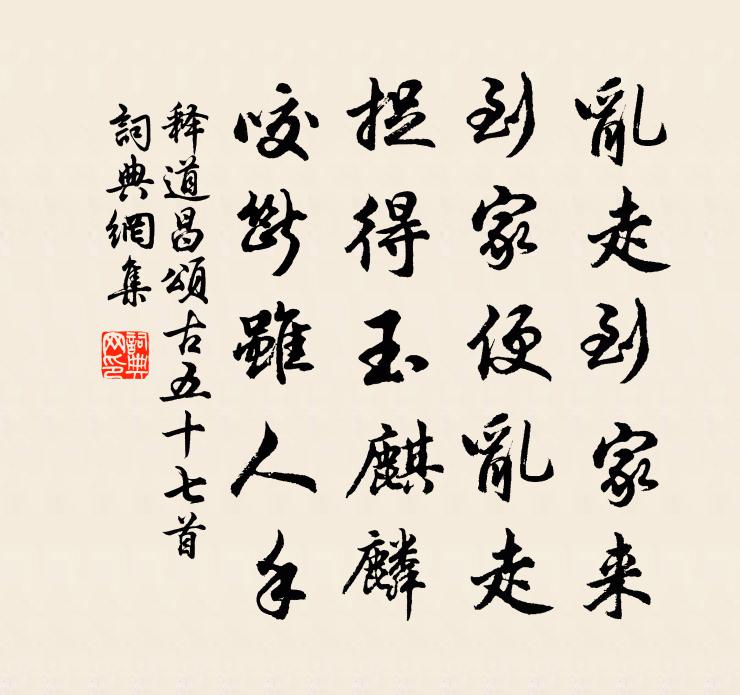 亂走到家来
到家便亂走
捉得玉麒麟
咬斷雖人手
释道昌頌古五十七首
詞典網集
詞典网印